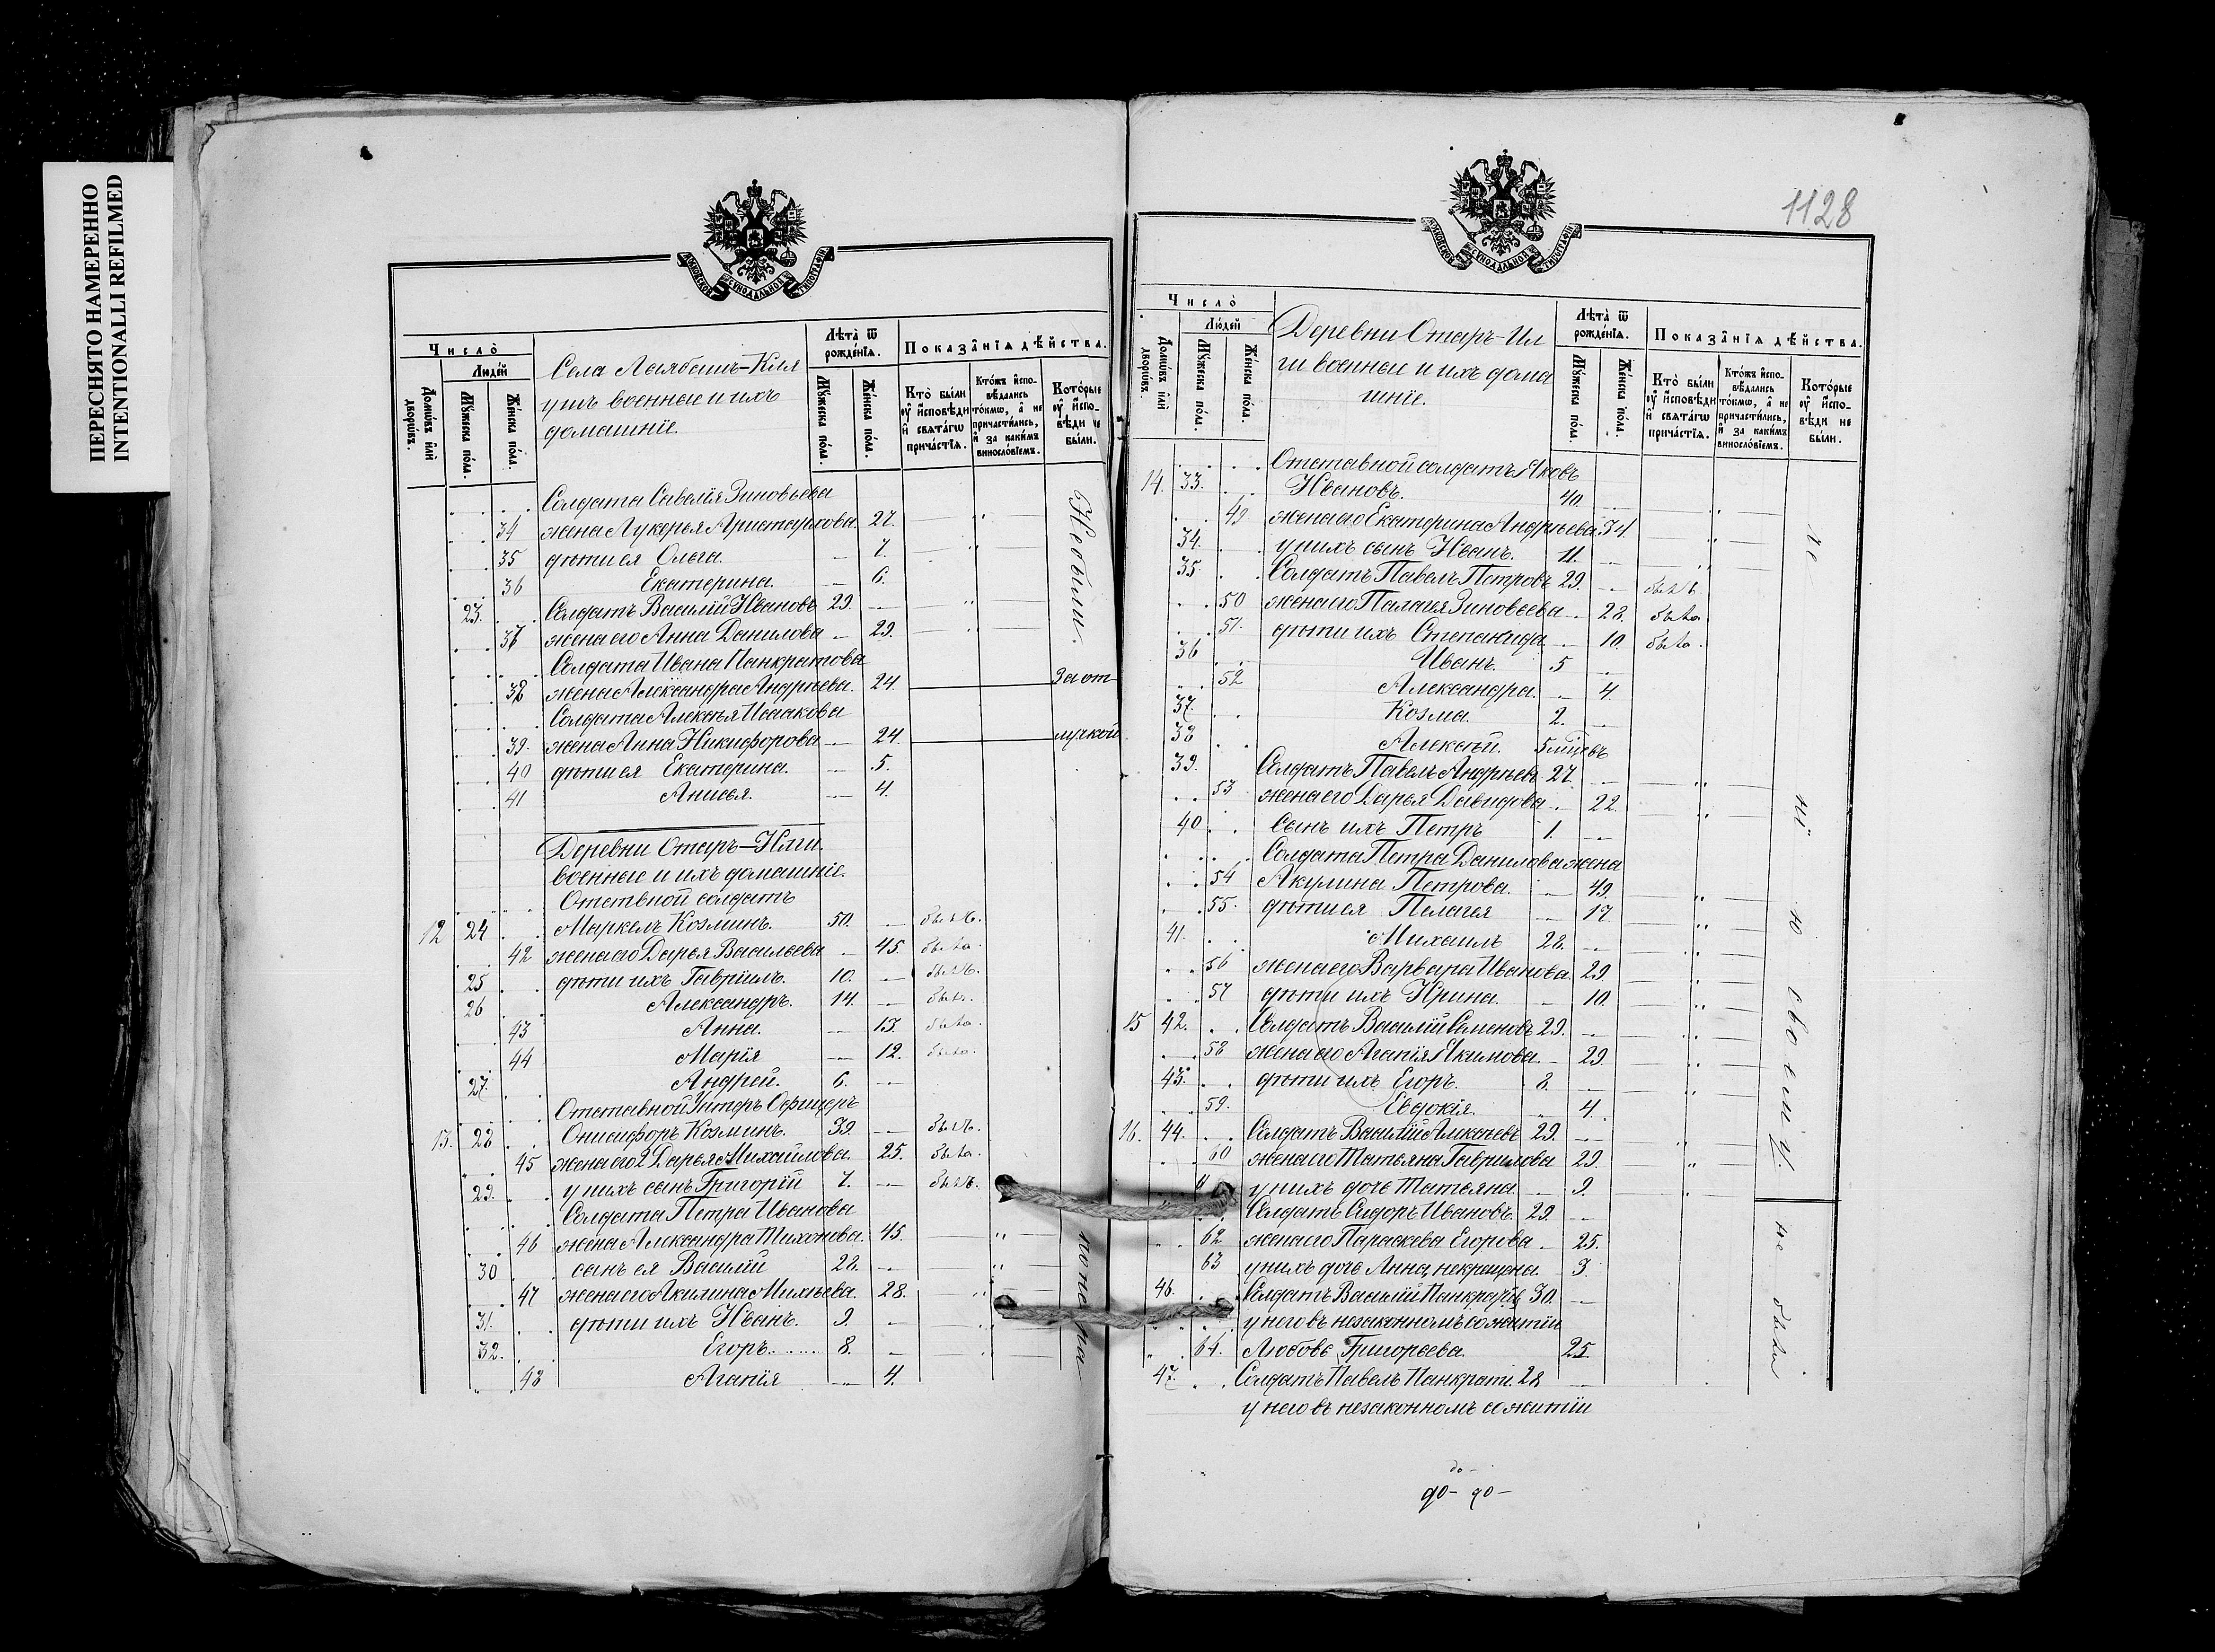 ПЕРЕСНЯТО НАМЕРЕННО
INTENTIONALLI REFILMED
МОСКОВСКОЙ СѴНОДАЛЬНОЙ ТИПОГРАФІИ
Число̀
Людей
Домѡвъ и҆лѝ дворѡвъ.
Мꙋжеска пола.
Женска пола.
Села
военные и ихъ
домашніе.
Лѣта̀ ѿ рожденїѧ.
Мꙋжеска пола.
Женска пола.
Показанїѧ дѣйства.
Кто̀ были ᲂу҆ и҆сповѣди и҆ свѧтагѡ причастїѧ.
Кто́жъ и҆споⸯвѣдались то́кмѡ, а҆ не причастились, и҆ за какимъ винословїемъ.
Которые ᲂу҆ и҆споⸯвѣди не были.
Солдата Савелія Зиновьева
34 жена Лукерья Аристархова. 27.
35 дѣти ея Ольга. — 7.
36 Екатерина. — 6.
23. Солдатъ Василій Ивановъ 29. —
37 жена его Анна Данилова — 29.
Не были.
Солдата Ивана Панкратова
38 жена Александра Андреева. 24. За от-
Солдата Алексѣя Исаакова
39. жена Анна Никифорова — 24. лучкой
40 дѣти ея Екатерина. — 5.
41 Анисья. — 4.
Деревни Старъ-Илги
военные и ихъ домашніе.
Отствной солдатъ
12 24 Маркелъ Козминъ. 50. — былъ.
42 жена его Дарья Васильева — 45. была.
25 дѣти ихъ Гавріилъ. 10. — былъ.
26 Александръ. 14. — былъ.
43 Анна. — 15. была.
44 Марія — 12. была.
27. Андрей. 6. —
Отставной Унтеръ Офицеръ
13. 28 Онисифоръ Козминъ. 39. — былъ.
45 жена его 2 Дарья Михайлова. 25. была.
29. у нихъ сынъ Григорій 7. — былъ.
Солдата Петра Иванова
46 жена Александра Тихонова. 45.
30 сынъ ея Василій 28. —
47 жена его Акилина Михѣева. 28.
31. дѣти ихъ Иванъ. 9. —
32. Егоръ. 8. —
48 Агапія — 4.
1128
МОСКОВСКОЙ СѴНОДАЛЬНОЙ ТИПОГРАФІИ
Число̀
Людей
Домѡвъ и҆лѝ дворѡвъ.
Мꙋжеска пола.
Женска пола.
Деревни Старъ-Ил
ги военные и ихъ дома
шніе.
Лѣта̀ ѿ рожденїѧ.
Мꙋжеска пола.
Женска пола.
Показанїѧ дѣйства.
Кто̀ были ᲂу҆ и҆сповѣди и҆ свѧтагѡ причастїѧ.
Кто́жъ и҆споⸯвѣдались то́кмѡ, а҆ не причастились, и҆ за какимъ винословїемъ.
Которые ᲂу҆ и҆споⸯвѣди не были.
Отставной солдатъ Яковъ
14. 33. Ивановъ. 40.
49. жена его Екатерина Андреева. 34.
34. у нихъ сынъ Иванъ. 11. —
35. Солдатъ Павелъ Петровъ 29. — былъ.
50 жена его Палагея Зиновьева — 28. была.
51. дѣти ихъ Степанида — 10. была.
36 Иванъ. 5 —
52 Александра. — 4.
37. Козма. 2. —
38 Алексѣй. 5 мѣцевъ
39. Солдатъ Павелъ Андреевъ 27. —
53 жена его Дарья Давидова — 22.
40 сынъ ихъ Петръ 1. —
Солдата Петра Данилова жена
54 Акулина Петрова. — 49.
55. дѣти ея Пелагея — 17
41. Михаилъ 28. —
56 жена его Варвара Иванова 29
57 дѣти ихъ Ирина. — 10.
15 42. Солдатъ Василій Семеновъ 29. —
58 жена его Агапія Якимова. — 29.
43. дѣти ихъ Егоръ. 8. —
59. Евдокія. 4.
16. 44. Солдатъ Василій Алексѣевъ 29. —
60 жена его Татьяна Гаврилова 29.
у нихъ дочь Татьяна. — 9.
Солдатъ Сидоръ Ивановъ. 29. —
62 жена его Параскева Егорова — 25.
63 у нихъ дочь Анна, некрещена. — 3.
46. Солдатъ Василій 30. —
у него въ незаконномъ сожитіи
64. Любовь Григорьева. 25.
47. Солдатъ Павелъ Панкрат. 28 —
у него въ незаконномъ сожитіи
не были
до —
до — до —